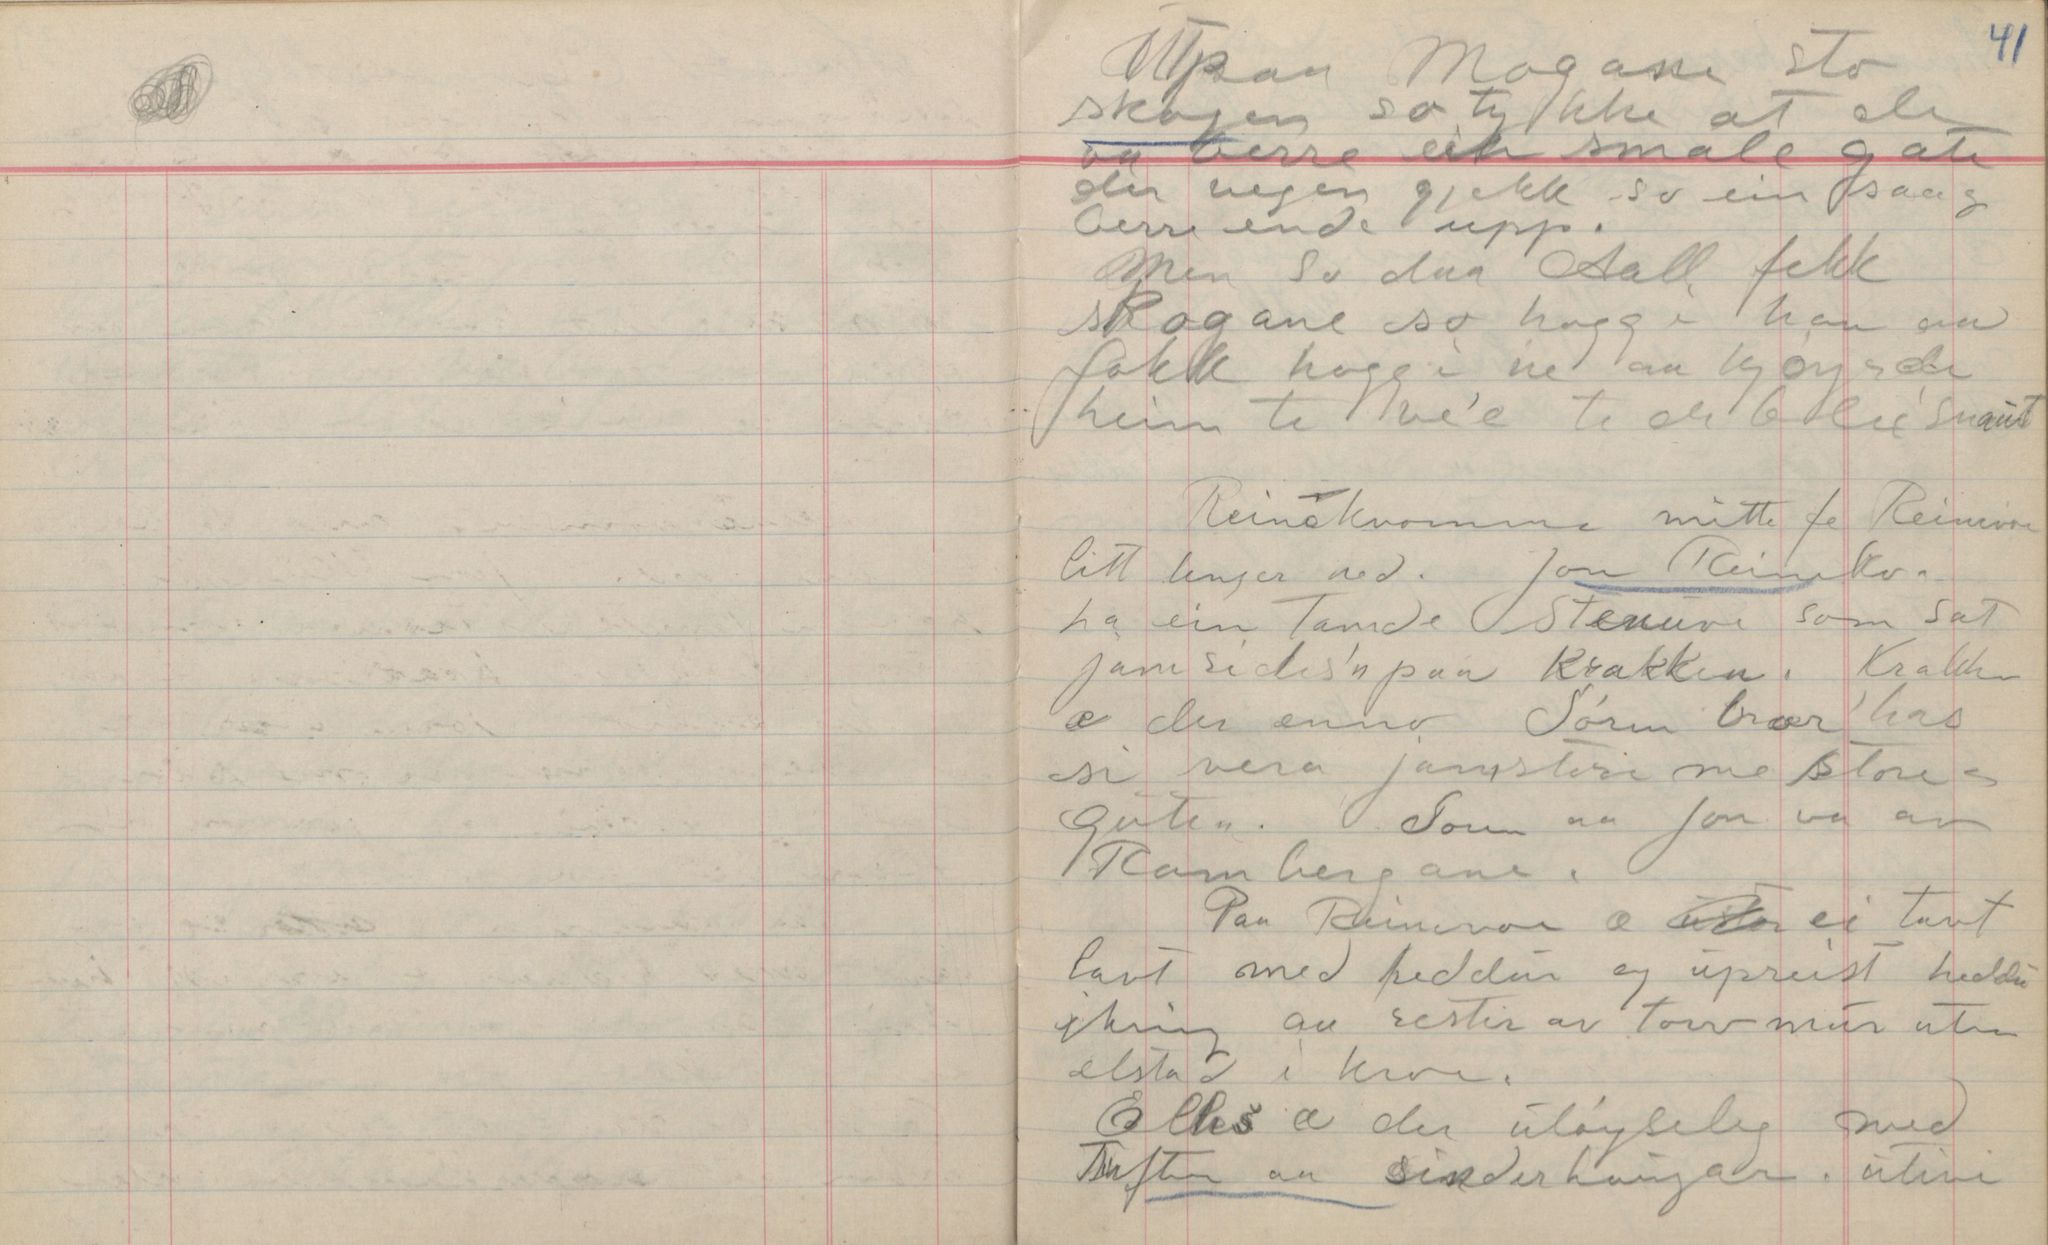 41
Utpaa Mogane sto
skogen so tykke at de
va berre ein smale gate
der vegen gjekk so ein saag
berre ende upp.
Men so daa Aall fekk
skogane so hoggi han aa
fokk hoggi ne aa kjøyrde
heim te ve'e te de blei snaut
Reinskvomme mitte fe Reinsvoe
litt lenger ned. Jon Reinskv.
ha ein tamde Stenuve som sat
jamsides'n paa krakken. Krakken
æ der enno Søren bror has
si vera jamstore me Store-
guten. Søren aa Jon va av
Rambergane.
Paa Reinsvoe æ ei tavt
lavt med heddur og upreist heddu
ikring aa restir av torvmur uten
elstad i kroe.
Elles æ der uløyseleg med
Tufter aa sinderhaugar. utive